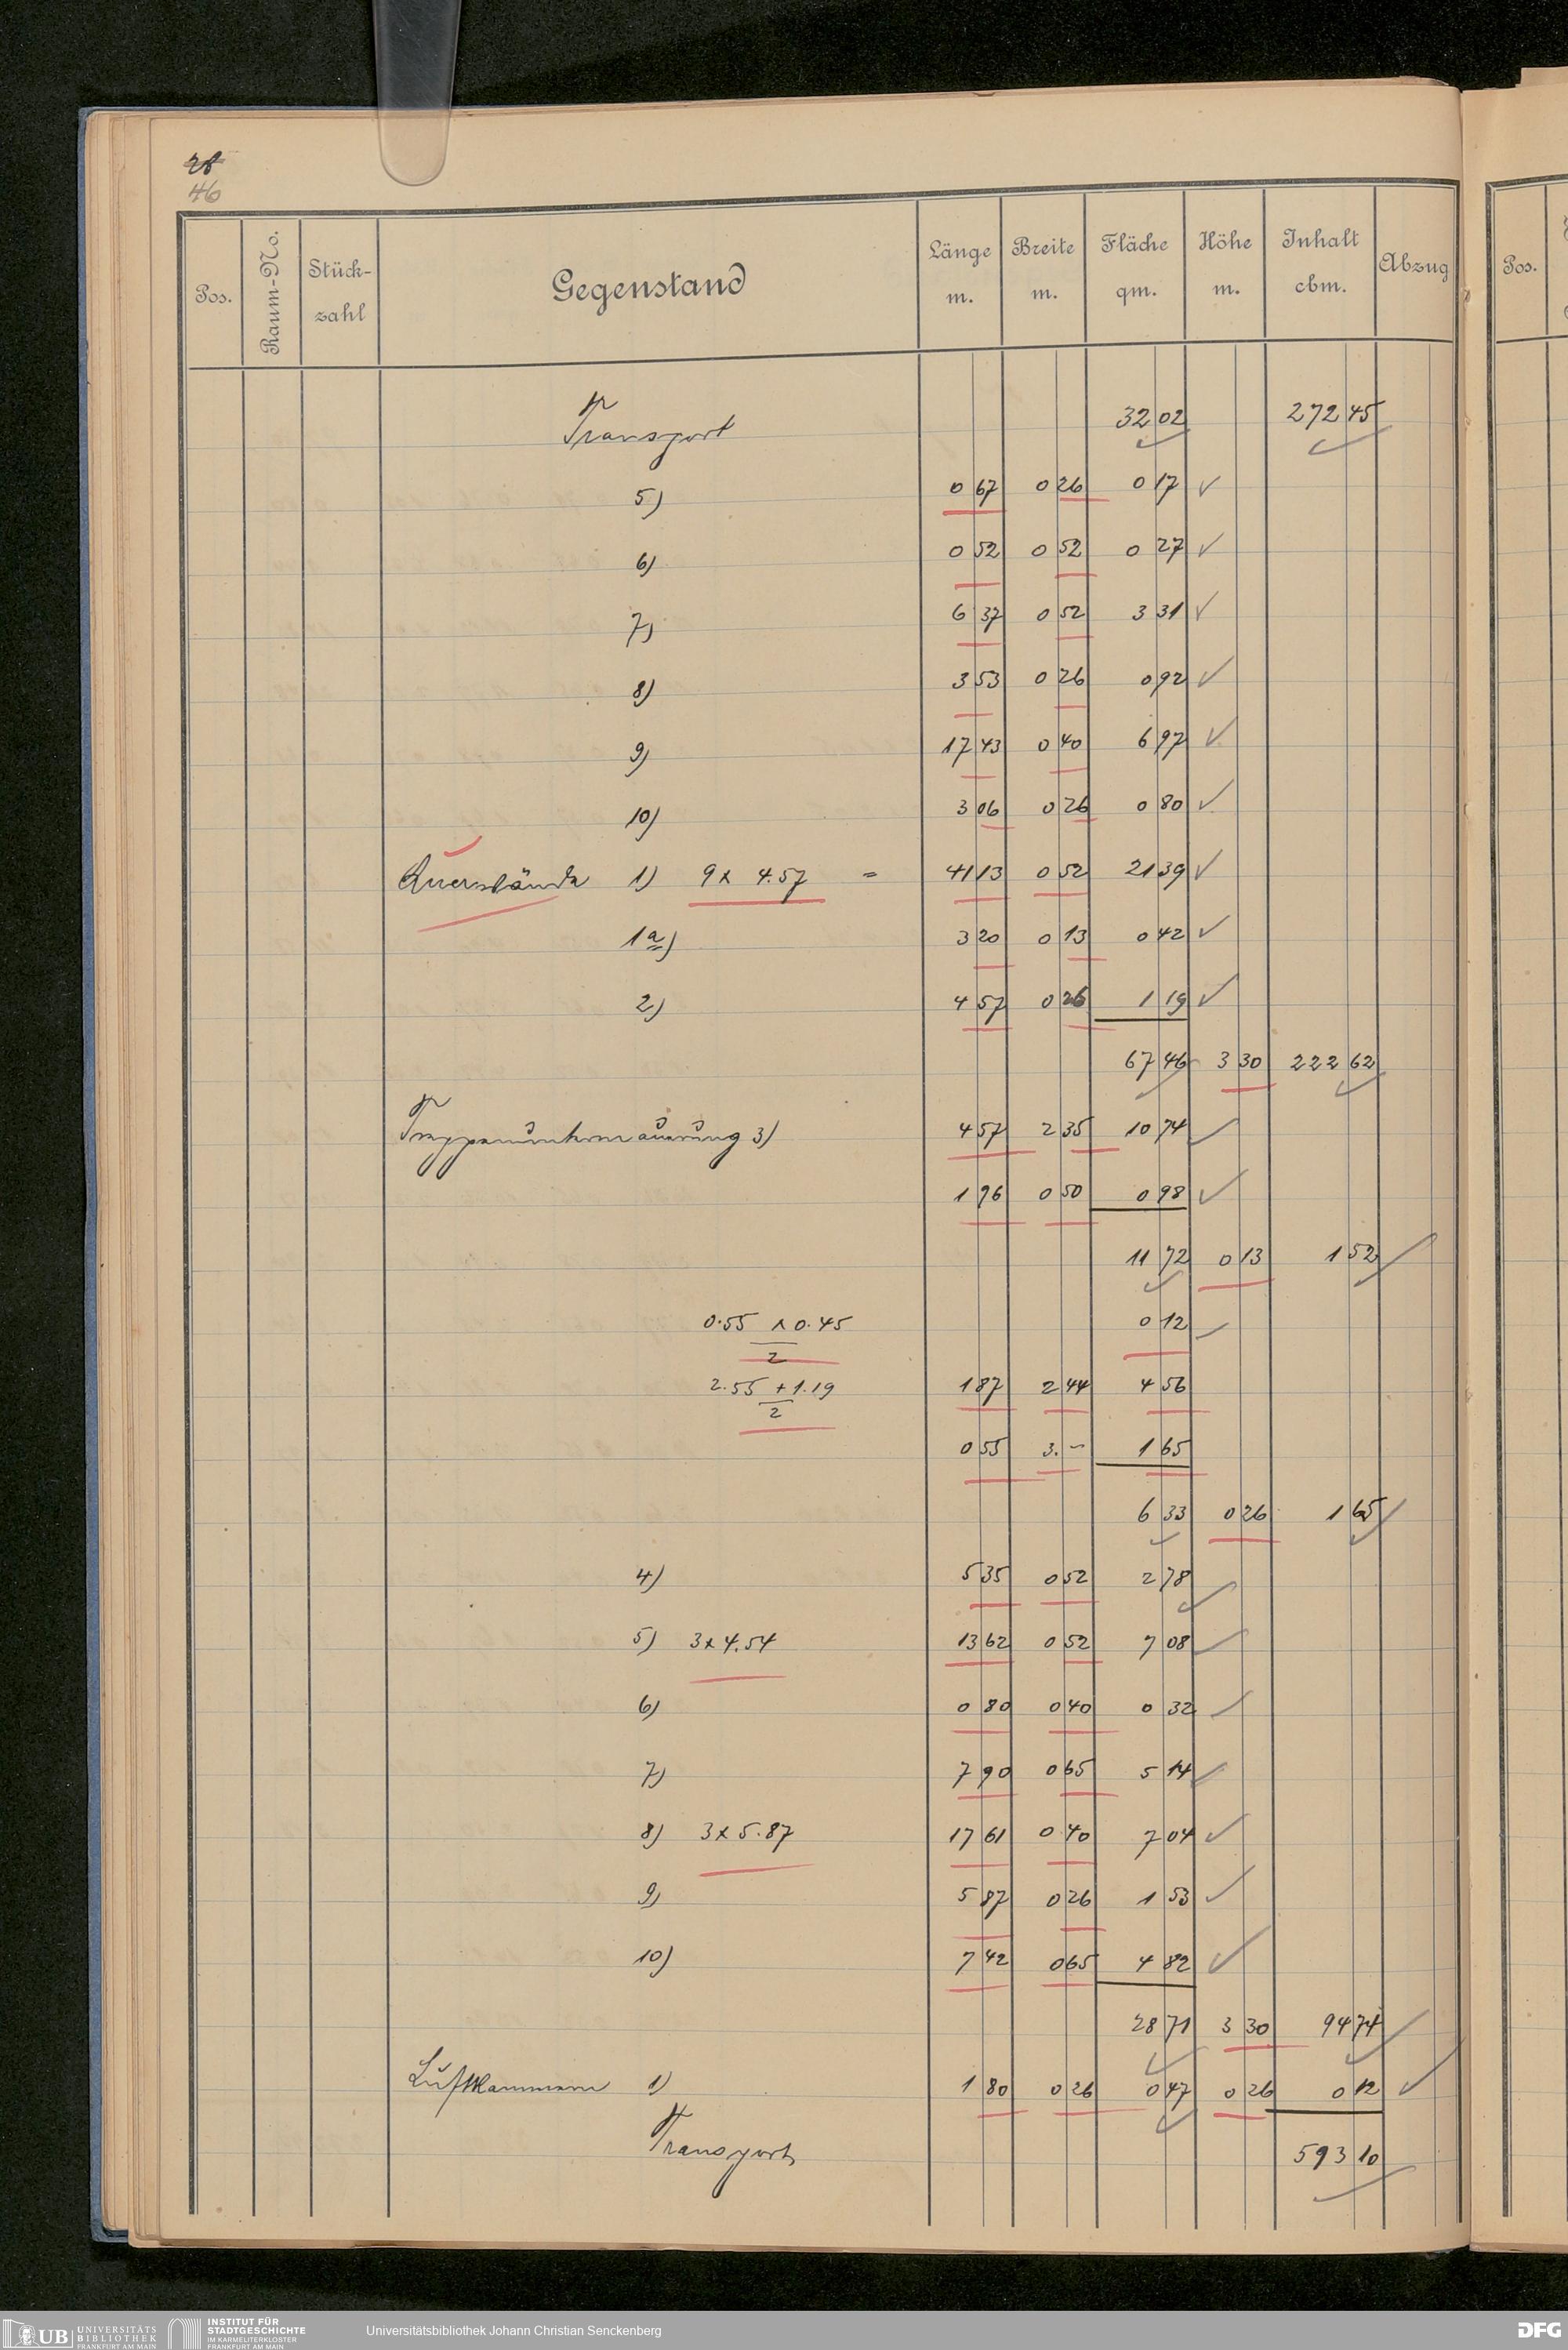 46
Pos. Raum-No. Stück-zahl Gegenstand Länge m. Breite m. Fläche qm. Höhe m. Inhalt cbm. Abzug Pos.
Transport 32 02 272 45
5) 0 67 0 26 0 17
6) 0 52 0 52 0 27
7) 6 37 0 52 3 31
8) 3 53 0 26 0 92
9) 17 43 0 40 6 97
10) 3 06 0 26 0 80
Querwände 1) 9 x 4.57 = 41 13 0 52 21 39
1a) 3 20 0 13 0 42
2) 4 57 0 26 1 19
67 46 3 30 222 62
Treppenuntermauerung 3) 4 57 2 35 10 74
1 96 0 50 0 98
11 72 0 13 1 52
0.55 x 0.45 0 12
2
2.55 + 1.19 1 87 2 44 4 56
2
0 55 3. - 1 65
6 33 0 26 1 65
4) 5 35 0 52 2 78
5) 3 x 4.54 13 62 0 52 7 08
6) 0 80 0 40 0 32
7) 7 90 0 65 5 14
8) 3 x 5.87 17 61 0 40 7 04
9) 5 87 0 26 1 53
10) 7 42 0 65 4 82
28 71 3 30 94 74
Luftkammern 1) 1 80 0 26 0 47 0 26 0 12
Transport 593 10
UB UNIVERSITÄTS BIBLIOTHEK FRANKFURT AM MAIN
INSTITUT FÜR STADTGESCHICHTE IM KARMELITERKLOSTER FRANKFURT AM MAIN
Universitätsbibliothek Johann Christian Senckenberg
DFG